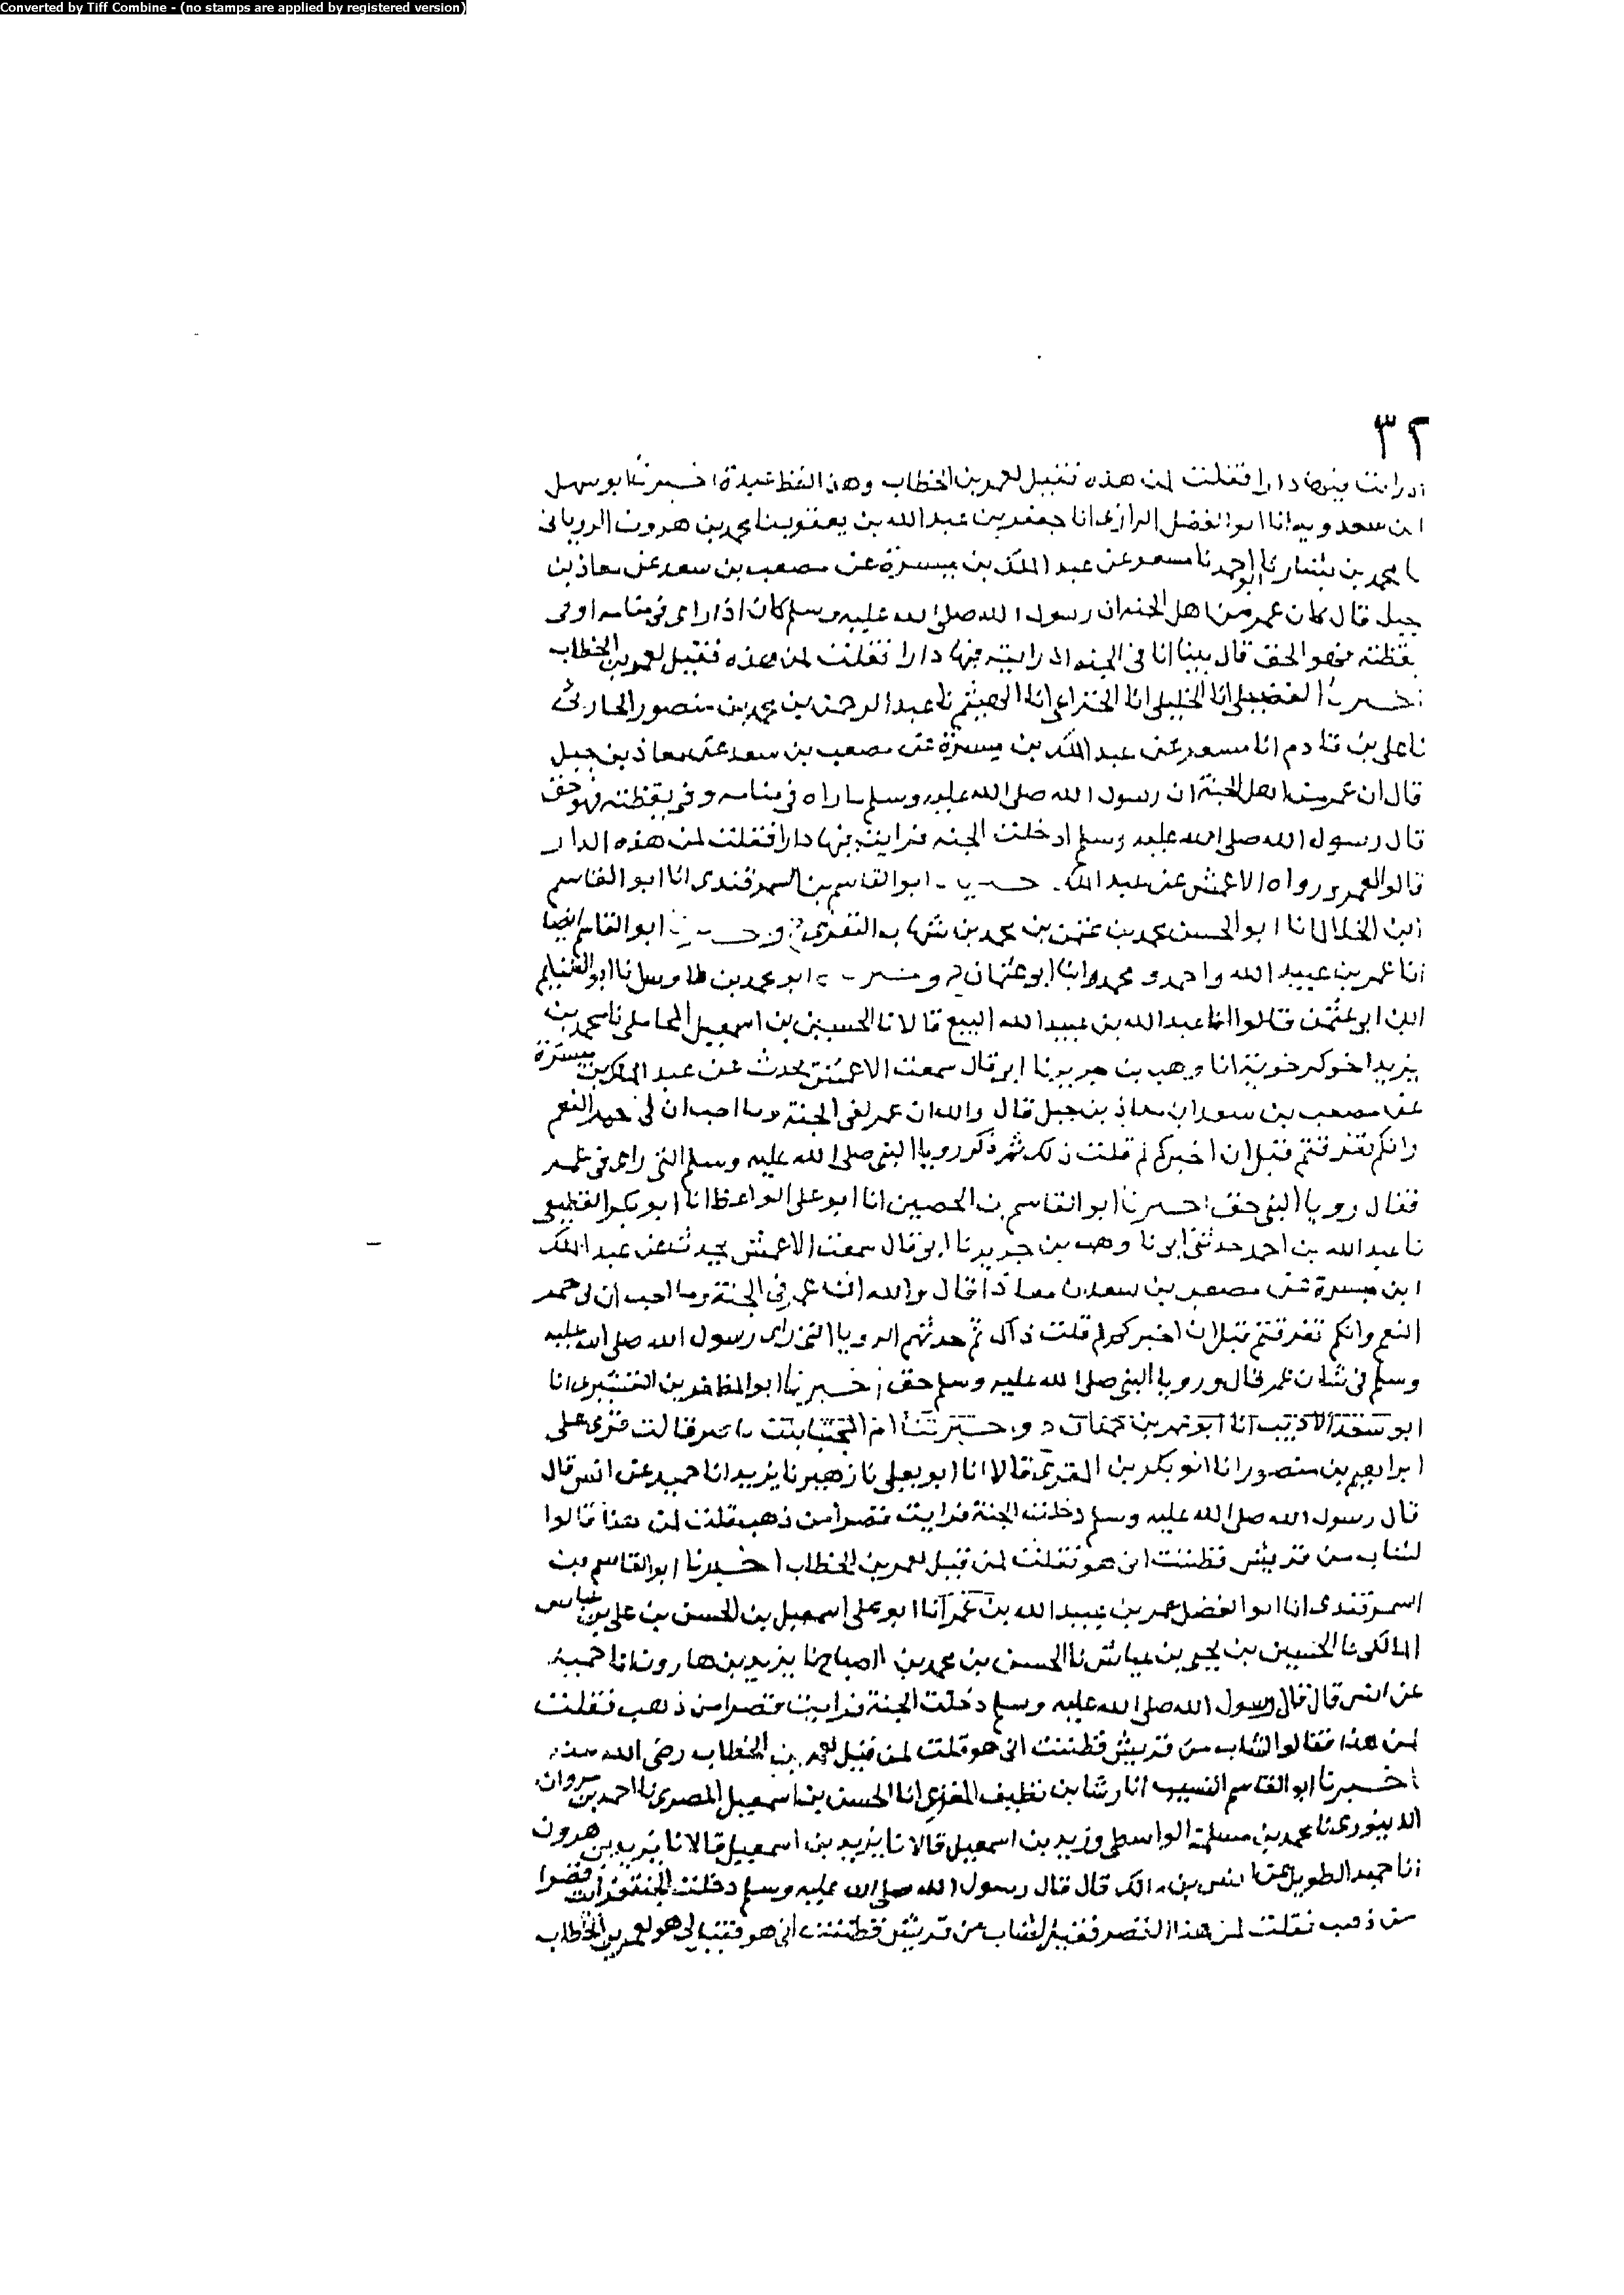 Converted by Tiff Combine - (no stamps are applied by registered version)
٣٢
اذ رايت فيها دارا فقلت لمن هذه فقيل لعمر بن الخطاب وهذا لفظ عبدة اخبرنا ابو سهل
ابن سعدويه انا ابو الفضل الرازي انا جعفر بن عبد الله بن يعقوب نا محمد بن هرون الروياني
نا محمد بن بشار نا ابو احمد نا مسعر عن عبد الملك بن ميسرة عن مصعب بن سعد عن معاذ بن
جبل قال كان عمر من اهل الجنه ان رسول الله صلى الله عليه وسلم كان اذا راى في منامه او في
يقظته فهو الحق قال بينا انا في الجنه اذ رايت فيها دارا فقلت لمن هذه فقيل لعمر بن الخطاب
اخبرنا الفضيلي انا الخليلي انا الخزاعي انا الهيثم نا عبد الرحمن بن محمد بن منصور الحارثي
نا علي بن قادم انا مسعر عن عبد الملك بن ميسرة عن مصعب بن سعد عن معاذ بن جبل
قال ان عمر من اهل الجنة ان رسول الله صلى الله عليه وسلم ما راه في منامه وفي يقظته فهو حق
قال رسول الله صلى الله عليه وسلم ادخلت الجنه فرايت فيها دارا فقلت لمن هذه الدار
قالوا لعمر ورواه الاعمش عن عبد الملك ابو القاسم بن السمرقندي انا ابو القاسم
ابن الخلال انا ابو الحسن محمد بن عثمن بن محمد بن شهاب النفري ابو القاسم ايضا
انا عمر بن عبيد الله واحمد ومحمد ابنا ابو عثمان ابو محمد بن طاوس انا ابو الغنايم
ابن ابي عثمن قالوا انا عبد الله بن عبيد الله البيع قالا نا الحسين بن اسمعيل المحاملي نا محمد بن
يزيد اخو كرخويه انا وهب بن جرير نا ابي قال سمعت الاعمش يحدث عن عبد الملك بن ميسرة
عن مصعب بن سعد ان معاذ بن جبل قال والله ان عمر لفي الجنة وما احب ان لي حمر النعم
وانكم تفرقتم قبل ان اخبركم لم قلت ذلك ثم ذكر رويا النبي صلى الله عليه وسلم التي راى في عمر
فقال رويا النبي حق اخبرنا ابو القاسم بن الحصين انا ابو علي الواعظ انا ابو بكر القطيعي
نا عبد الله بن احمد حدثني ابي نا وهب بن جرير نا ابي قال سمعت الاعمش يحدث عن عبد الملك
ابن ميسرة عن مصعب بن سعد ان معاذا قال والله ان عمر في الجنة وما احب ان لي حمر
النعم وانكم تفرقتم قبل ان اخبركم لم قلت ذاك ثم حدثهم الرويا التي راى رسول الله صلى الله عليه
وسلم في شان عمر قال ورويا النبي صلى الله عليه وسلم حق اخبرنا ابو المظفر بن القشيري انا
ابو سعد الاديب انا ابو عمر بن حمدان واخبرتنا ام المجتبا بنت ناصر قالت قرى على
ابراهيم بن منصور انا ابو بكر بن المقرى قالا انا ابو يعلى نا زهير نا يزيد انا حميد عن انس قال
قال رسول الله صلى الله عليه وسلم دخلت الجنة فرايت قصرا من ذهب قلت لمن هذا قالوا
لشاب من قريش فظننت اني هو فقلت لمن قيل لعمر بن الخطاب اخبرنا ابو القاسم بن
السمرقندي انا ابو الفضل عمر بن عبيد الله بن عمر انا ابو علي اسمعيل بن الحسن بن علي بن عياس
المالكي نا الحسين بن يحيى بن عياش نا الحسن بن محمد بن الصباح نا يزيد بن هارون انا حميد
عن انس قال قال رسول الله صلى الله عليه وسلم دخلت الجنة فرايت قصرا من ذهب فقلت
لمن هذا فقالوا لشاب من قريش فظننت اني هو قلت لمن قيل لعمر بن الخطاب رضى الله عنه
اخبرنا ابو القاسم النسيب انا رشا بن نظيف المقرى انا الحسن بن اسمعيل المصري نا احمد بن مروان
الدينوري نا محمد بن مسلمة الواسطي وزيد بن اسمعيل قالا نا يزيد بن اسمعيل قالا نا يزيد بن هرون
انا حميد الطويل عن انس بن مالك قال قال رسول الله صلى الله عليه وسلم دخلت الجنة فرايت قصرا
من ذهب فقلت لمن هذا القصر فقيل لشاب من قريش فظننت اني هو فقيل لي هو لعمر بن الخطاب